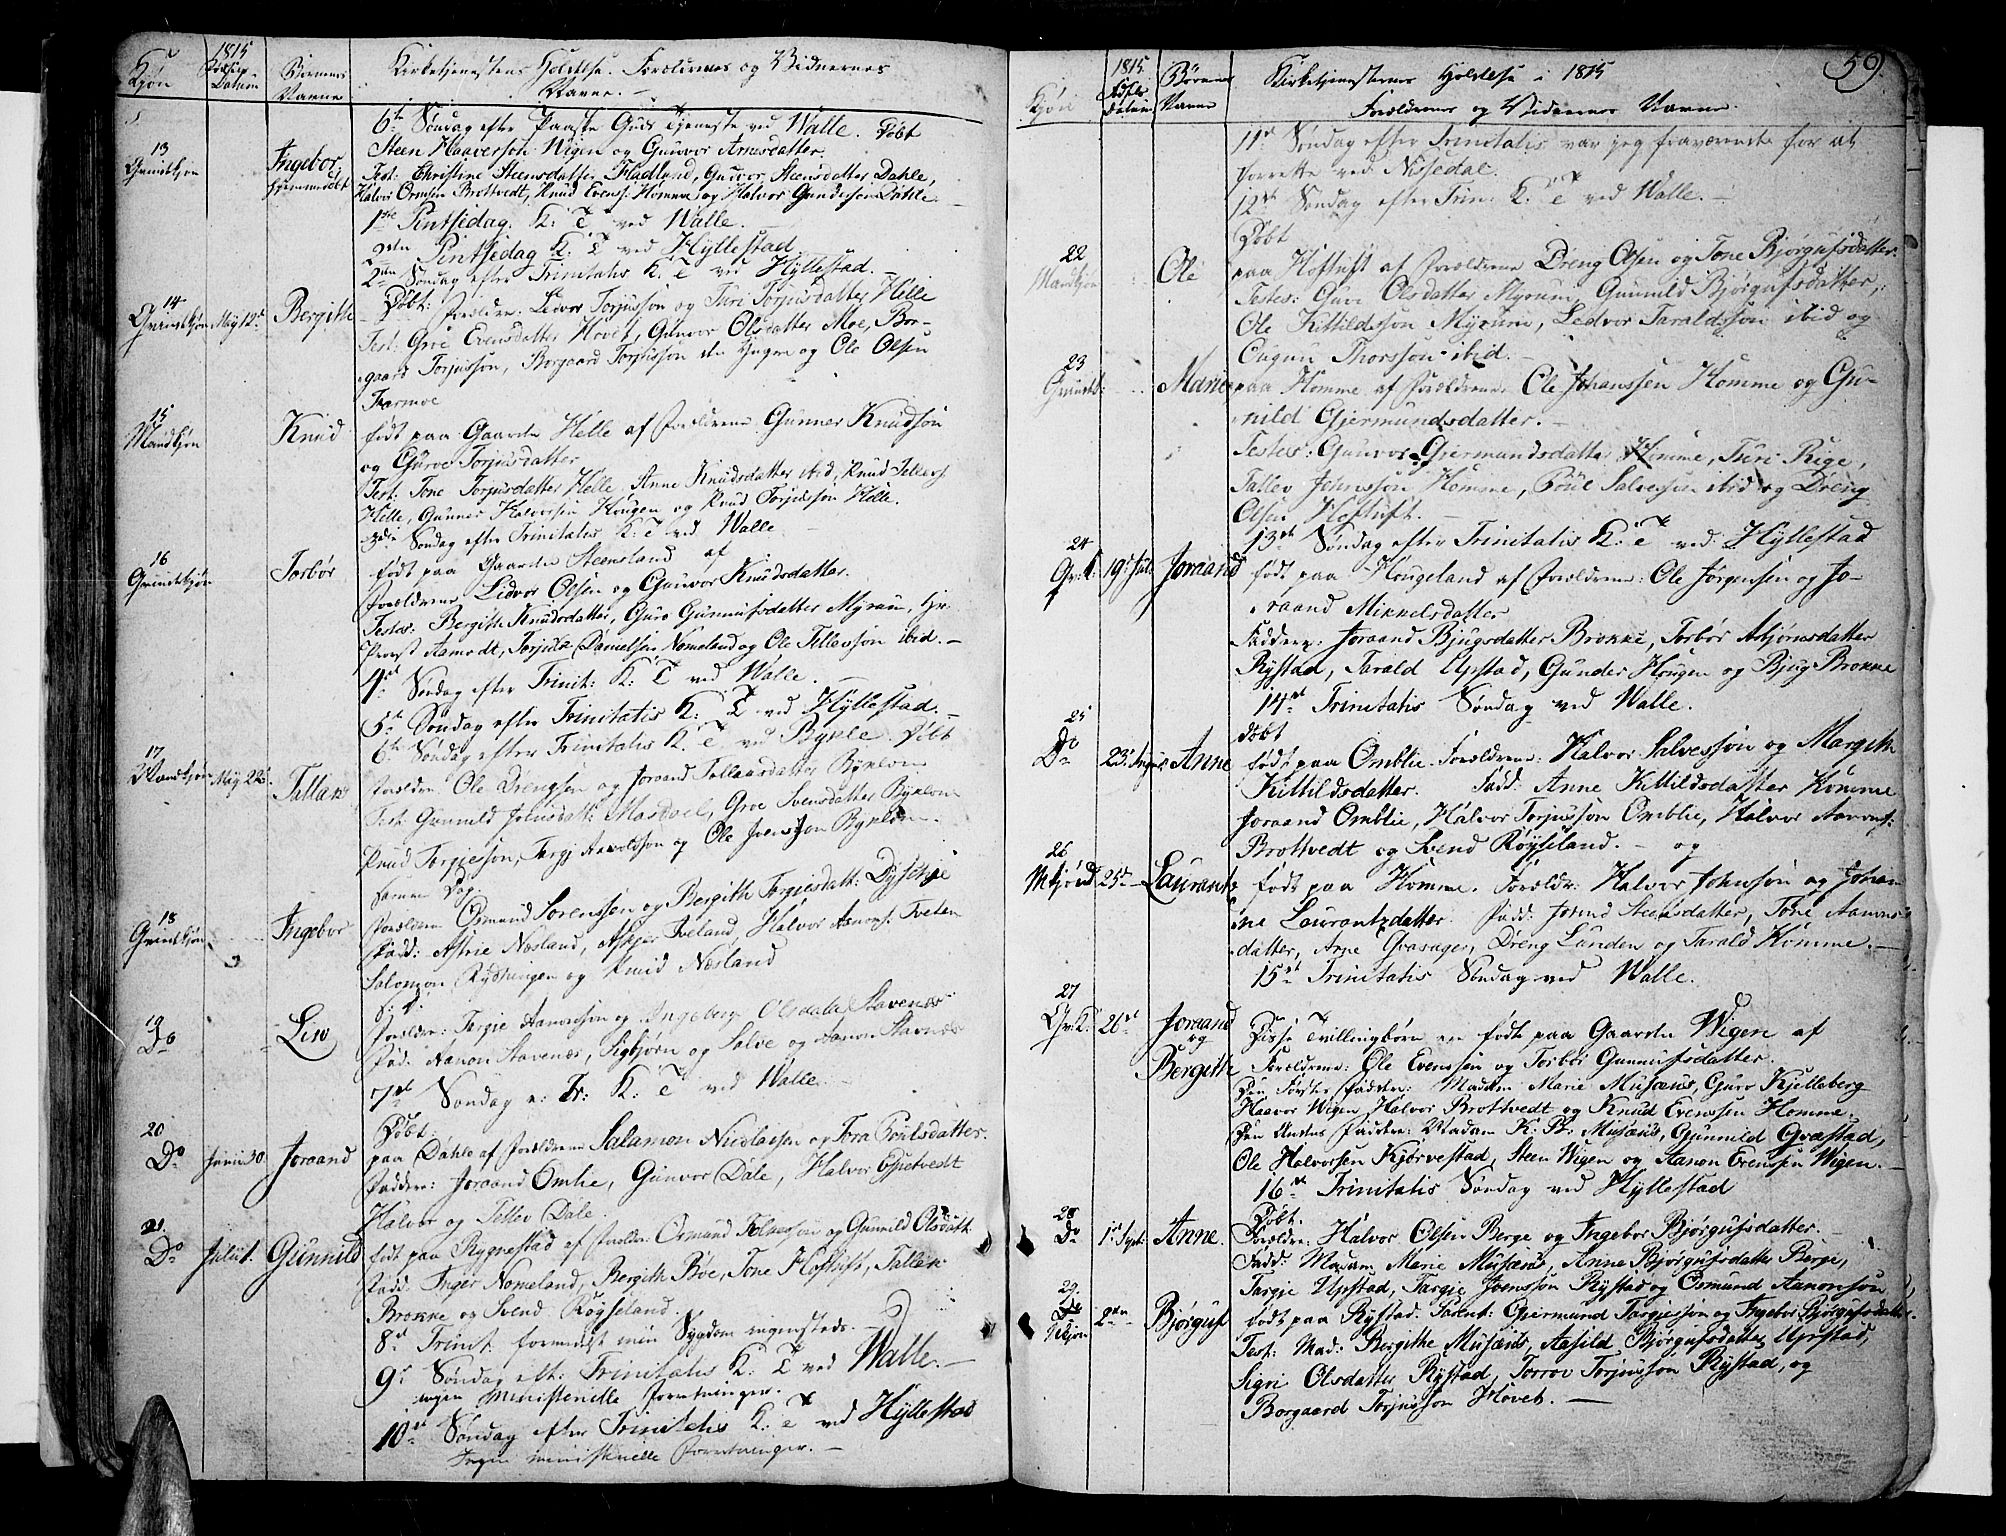 Kjøn
1815
Fødsels
Datum
Børnenes
Navne
Kirketjenestens Holdelse. Forældrenes og Vidnernes
Navne. -
6te Søndag efter Paaske Guds Tjeneste ved Walle. Døbt
13
Qvindekjøn
Ingebor
hjemmedøbt
Steen Haaverson Wigen og Gunvor Arnesdatter.
Test: Christine Steensdatter Fladlund, Gunvor Steensdatter Dahle,
Halvor Ormsen Brottvedt, Knud Evens: Homme og Halvor Gundersen Dahle.
1ste Pintsedag. K: T ved Walle.
2den Pintsedag K: T ved Hyllestad
2den Søndag efter Trinitatis K: T ved Hyllestad.
14
Qvindekjøn
May 12te
Bergithe
Døbt: Forældre: Ledvor Torjusson og Turi Torjusdatter Helle
Test: Groe Evensdatter Hovet, Gunvor Olsdatter Moe, Bor-
gaard Torjusson, Borgaard Torjusson den Yngre og Ole Olsen
Harmoe
15
Mandkjøn
Knud
født paa Gaarden Helle af Forældrene Gunner Knudson
og Gurve Torjusdatter
Test: Tone Torjusdatter Helle, Anne Knudsdatter ibid, Knud Tellefs
Helle, Gunner Halvorsen Hougen og Knud Torjusson Helle.
3die Søndag efter Trinitatis K: T ved Walle
16
Qvindekjøn
Torbør
født paa Gaarden Steensland af
Forældrene Lidvor Olsen og Gunvor Knudsdatter.
Testes: Bergith Knudsdatter, Guro Gunnufsdatter Myrum, Hr.
Provst Aamodt, Torjuls Danielsen Nomeland og Ole Tellevsson ibid. -
4de Søndag efter Trinit: K: T ved Walle.
5te Søndag efter Trinitatis K: T ved Hyllestad.
6te Søndag efter Trinitatis K: T ved Bykle Døbt
17
Mandkjøn
May 22
Tallak
Forældre: Ole Drengsen og Joraand Tellaasdatter Byklom
Test: Gunnild Jonsdatt: Mosdøel, Groe Svensdatter Byklom
Knud Torjeson, Targj Arvoldson og Ole Jvensson Byklom.
Samme Dag.
18
Qvindekjøn
Ingebor
Forældre Osmund Sorenssen og Bergith Torgiusdatt: Dyschje
Fadd: Astrie Næsland, Askjer Tveland, Halvor Aanons: Tveten
Salomon Rydningen og Knud Næsland
19
Do
Liv
Forældre: Targie Aanonsson og Ingeborg Olsdatter Stavenæs
Fad: Aanon Stavenæs, Sigbjørn og Salve og Aanon Stavnæs
7de Søndag e: Tr: K: T ved Walle. -
20
Do
Junii 30
Joraand
Døbt:
paa Dahle af Forældrene Salamon Nicolaisen og Tora Poulsdatter.
Faddere: Joraand Omlie, Gunvor Dale, Halvor Egietvedt
Halvor og Tellev Dale.
21
Do
Julii 1
Gunnild
født paa Rygnestad af Foreldre Osmund Folkesson og Gunnild Olsdatt
Fadd: Inger Nomeland, Bergith Bøe, Tone Hoftuft, Tallak
Brokke og Svend Røyseland.
8de Trinit. formedelst min Sygdom ingensteds. -
9de Søndag eft: Trinitatis K: T ved Walle. -
ingen ministerielle Forretninger.
10de Søndag efter Trinitatis K: T ved Hyllestad
Ingen ministerielle Forretninger. -
59.
Kjøn
1815
Fødsels
Datum
Børnenes
Navne
Kirketjenestens Holdelse i 1815
Forældrenes og Vidnernes Navne.
11te Søndag efter Trinitatis var jeg fraværende for at
forrette ved Nissedal.
12te Søndag efter Trin: K: T ved Walle. -
Døbt
22
Mandkjøn
Ole
paa Hoftuft af Forældrene Dreng Olsen og Tone Bjørgufsdatter.
Testes: Guro Olsdatter Myrum, Gunnild Bjørgufsdatter,
Ole Kittildsson Myrum, Ledvor Taraldsson ibid og
Ougun Thorsson ibid. -
23
Qvindek:
Marie
paa Homme af Forældrene Ole Johanssen Homme og Gu-
nild Gjermundsdatter. -
Testes: Gunvor Gjermundsdatter Homme, Turi Rige,
Tallev Johnsson Homme, Poul Salvesson ibid og Dreng
Olsen Hoftuft. -
13de Søndag efter Trinitatis K: T ved Hyllestad
24
Qv: K:
19de Juli
Joraand
født paa Hougeland af Forældrene: Ole Jørgensen og Jo-
raand Mikkelsdatter
Faddere: Joraand Bjugsdatter Brokke, Torbør Asbjørnsdatter
Rystad, Tarald Upstad, Gunder Hougen og Bjug Brokke
14de Trinitatis Søndag ved Walle.
25
Do
23de August
Anne
døbt
født paa Omblie. Forældrene: Halvor Salvesson og Margith
Kittildsdatter. Fadd: Anne Kittildsdatter Homme
Joraand Omblie, Halvor Torjusson Omblie, Halvor Aanons:
Brottvedt og Svend Røyseland. - og
26
Mkjønd
25de
Laurants
født paa Homme. Foreldr: Halvor Johnson og Johan
ne Laurantzdatter. Fadd: Jorund Steensdatter, Tone Aanons-
datter, Arne Qvasager, Dreng Lunden og Tarald Homme. -
15de Trinitatis Søndag ved Walle.
27
Qv: K:
26de
Joraand
og
Bergith
Disse Tvillingbørn ere født paa Gaarden Wigen af
Forældrene: Ole Evenssen og Torbør Gunnufsdatter.
Den Førstes Faddere: Madam Marie Musæus, Guro Kjelleberg
Haavor Wigen Halvor Brottvedt og Knud Evenssen Homme.
Den Andens Faddere: Madam K. B. Musæus, Gunnild Qvæstad,
Ole Halvorsen Kjørvestad, Steen Wigen og Aanon Evensen Wigen. -
16de Trinitatis Søndag ved Hyllestad
28
Do
1ste Sept:
Anne.
Døbt.
Forældre: Halvor Olsen Berge og Ingebor Bjørgufsdatter.
Fadd: Madam Marie Musæus, Anne Bjørgufsdatter Berge,
Targie Upstad, Targie Jvensson Rystad og Osmund Aanonson
29
Mkjøn
2den
Bjørguf
født paa Rystad. Parent: Gjermund Torgiesson og Ingebor Bjørgufsdatter.
Test: Mad: Bergithe Musæus, Aasild Bjørgufsdatter Upstad,
Sigri Olsdatter Rystad, Torrov Torjusson Rystad, og
Borgaard Torjusson Hovet. -